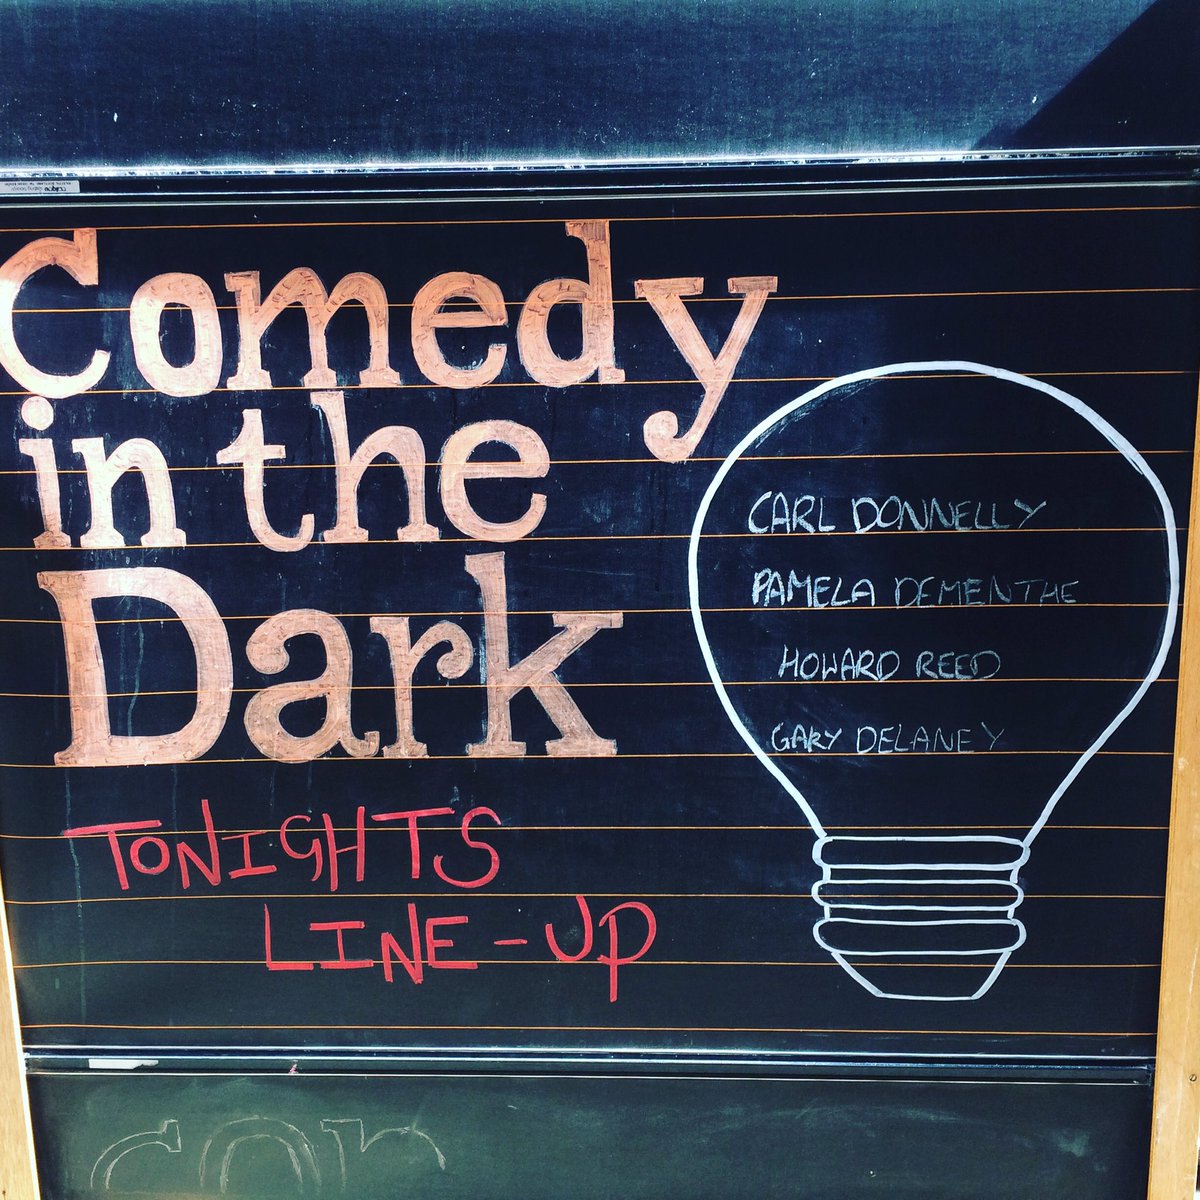 Comedy
in the
Dark
TONIGHTS
LINE-UP
CARL DONNELLY
PAMELA DEMENTHE
HOWARD REED
GARY DELANEY
con